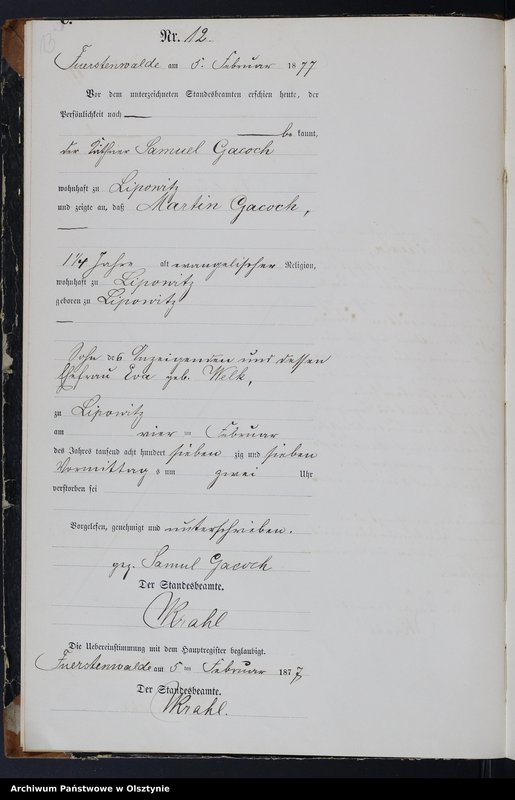 C.
13
Nr. 12.
Fuerstenwalde am 5. Februar 1877
Vor dem unterzeichneten Standesbeamten erschien heute, der
Persönlichkeit nach
be kannt,
der Käthner Samuel Gacoch
wohnhaft zu Lipowitz
und zeigte an, daß Martin Gacoch,
1 1/4 Jahre alt evangelischer Religion,
wohnhaft zu Lipowitz
geboren zu Lipowitz
Sohn des Anzeigenden und dessen
Ehefrau Eva geb. Welk,
zu Lipowitz
am vier ten Februar
des Jahres tausend acht hundert sieben zig und sieben
Vormittag s um zwei Uhr
verstorben sei
Vorgelesen, genehmigt und unterschrieben.
gez. Samul Gacoch
Der Standesbeamte.
Krahl
Die Uebereinstimmung mit dem Hauptregister beglaubigt.
Fuerstenwalde am 5 ten Februar 1877
Der Standesbeamte.
Krahl.
Archiwum Państwowe w Olsztynie